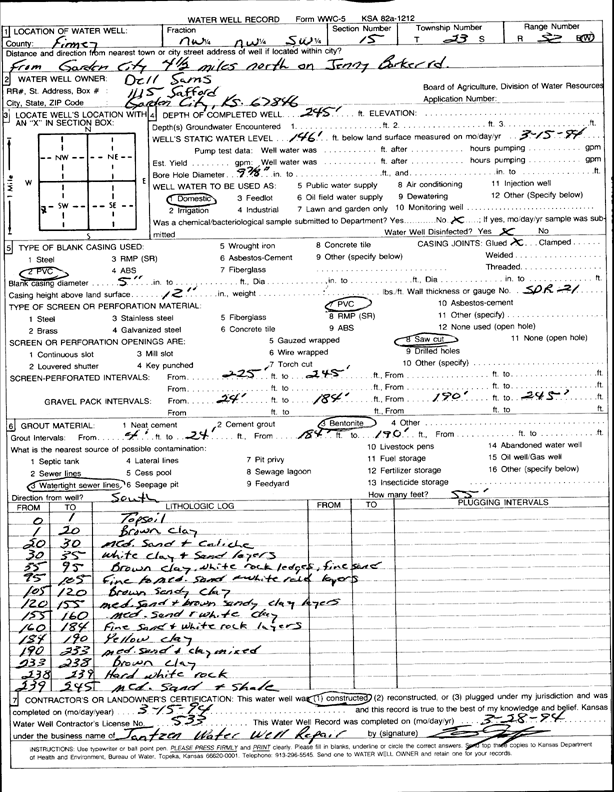 WATER WELL RECORD Form WWC-5 KSA 82a-1212
1 LOCATION OF WATER WELL: Fraction Section Number Township Number Range Number
County: Finney NW¼ NW¼ SW¼ 15 T 23 S R 32 E(W)
Distance and direction from nearest town or city street address of well if located within city?
From Garden City 4½ miles north on Jenny Barker rd.
2 WATER WELL OWNER: Dell Sams
RR#, St. Address, Box #: 1115 Safford Board of Agriculture, Division of Water Resources
City, State, ZIP Code: Garden City, KS. 67846 Application Number:
3 LOCATE WELL'S LOCATION WITH AN "X" IN SECTION BOX: 4 DEPTH OF COMPLETED WELL 245' ft. ELEVATION:
Depth(s) Groundwater Encountered 1 ft. 2 ft. 3 ft.
WELL'S STATIC WATER LEVEL 146' ft. below land surface measured on mo/day/yr 3-15-94
Pump test data: Well water was ft. after hours pumping gpm
Est. Yield gpm: Well water was ft. after hours pumping gpm
Bore Hole Diameter 9 7/8" in. to ft., and in. to ft.
N
NW NE
1 Mile W E
SW SE
X
S
WELL WATER TO BE USED AS: 5 Public water supply 8 Air conditioning 11 Injection well
1 Domestic 3 Feedlot 6 Oil field water supply 9 Dewatering 12 Other (Specify below)
2 Irrigation 4 Industrial 7 Lawn and garden only 10 Monitoring well
Was a chemical/bacteriological sample submitted to Department? Yes No X ; If yes, mo/day/yr sample was submitted Water Well Disinfected? Yes X No
5 TYPE OF BLANK CASING USED: 5 Wrought iron 8 Concrete tile CASING JOINTS: Glued X Clamped
1 Steel 3 RMP (SR) 6 Asbestos-Cement 9 Other (specify below) Welded
2 PVC 4 ABS 7 Fiberglass Threaded
Blank casing diameter 5" in. to ft., Dia in. to ft., Dia in. to ft.
Casing height above land surface 12" in., weight lbs./ft. Wall thickness or gauge No. SDR 21
TYPE OF SCREEN OR PERFORATION MATERIAL: 7 PVC 10 Asbestos-cement
1 Steel 3 Stainless steel 5 Fiberglass 8 RMP (SR) 11 Other (specify)
2 Brass 4 Galvanized steel 6 Concrete tile 9 ABS 12 None used (open hole)
SCREEN OR PERFORATION OPENINGS ARE: 5 Gauzed wrapped 8 Saw cut 11 None (open hole)
1 Continuous slot 3 Mill slot 6 Wire wrapped 9 Drilled holes
2 Louvered shutter 4 Key punched 7 Torch cut 10 Other (specify)
SCREEN-PERFORATED INTERVALS: From 225' ft. to 245' ft., From ft. to ft.
From ft. to ft., From ft. to ft.
GRAVEL PACK INTERVALS: From 24' ft. to 184' ft., From 190' ft. to 245' ft.
From ft. to ft., From ft. to ft.
6 GROUT MATERIAL: 1 Neat cement 2 Cement grout 3 Bentonite 4 Other
Grout Intervals: From 4' ft. to 24' ft., From 184' ft. to 190' ft., From ft. to ft.
What is the nearest source of possible contamination: 10 Livestock pens 14 Abandoned water well
1 Septic tank 4 Lateral lines 7 Pit privy 11 Fuel storage 15 Oil well/Gas well
2 Sewer lines 5 Cess pool 8 Sewage lagoon 12 Fertilizer storage 16 Other (specify below)
3 Watertight sewer lines 6 Seepage pit 9 Feedyard 13 Insecticide storage
Direction from well? South How many feet? 55'
FROM TO LITHOLOGIC LOG FROM TO PLUGGING INTERVALS
0 1 Topsoil
1 20 Brown clay
20 30 med. sand & caliche
30 35 white clay & sand layers
35 95 Brown clay, white rock ledges, fine sand
95 105 Fine to med. sand & white rock layers
105 120 Brown sandy clay
120 155 med. sand & brown sandy clay layers
155 160 med. sand & white clay
160 184 Fine sand & white rock layers
184 190 Yellow clay
190 233 med. sand & clay mixed
233 238 Brown clay
238 239 Hard white rock
239 245 med. sand & shale
7 CONTRACTOR'S OR LANDOWNER'S CERTIFICATION: This water well was (1) constructed, (2) reconstructed, or (3) plugged under my jurisdiction and was
completed on (mo/day/year) 3-15-94 and this record is true to the best of my knowledge and belief. Kansas
Water Well Contractor's License No. 533 This Water Well Record was completed on (mo/day/yr) 3-28-94
under the business name of Jantzen Water Well Repair by (signature)
INSTRUCTIONS: Use typewriter or ball point pen. PLEASE PRESS FIRMLY and PRINT clearly. Please fill in blanks, underline or circle the correct answers. Send top three copies to Kansas Department
of Health and Environment, Bureau of Water, Topeka, Kansas 66620-0001. Telephone: 913-296-5545. Send one to WATER WELL OWNER and retain one for your records.